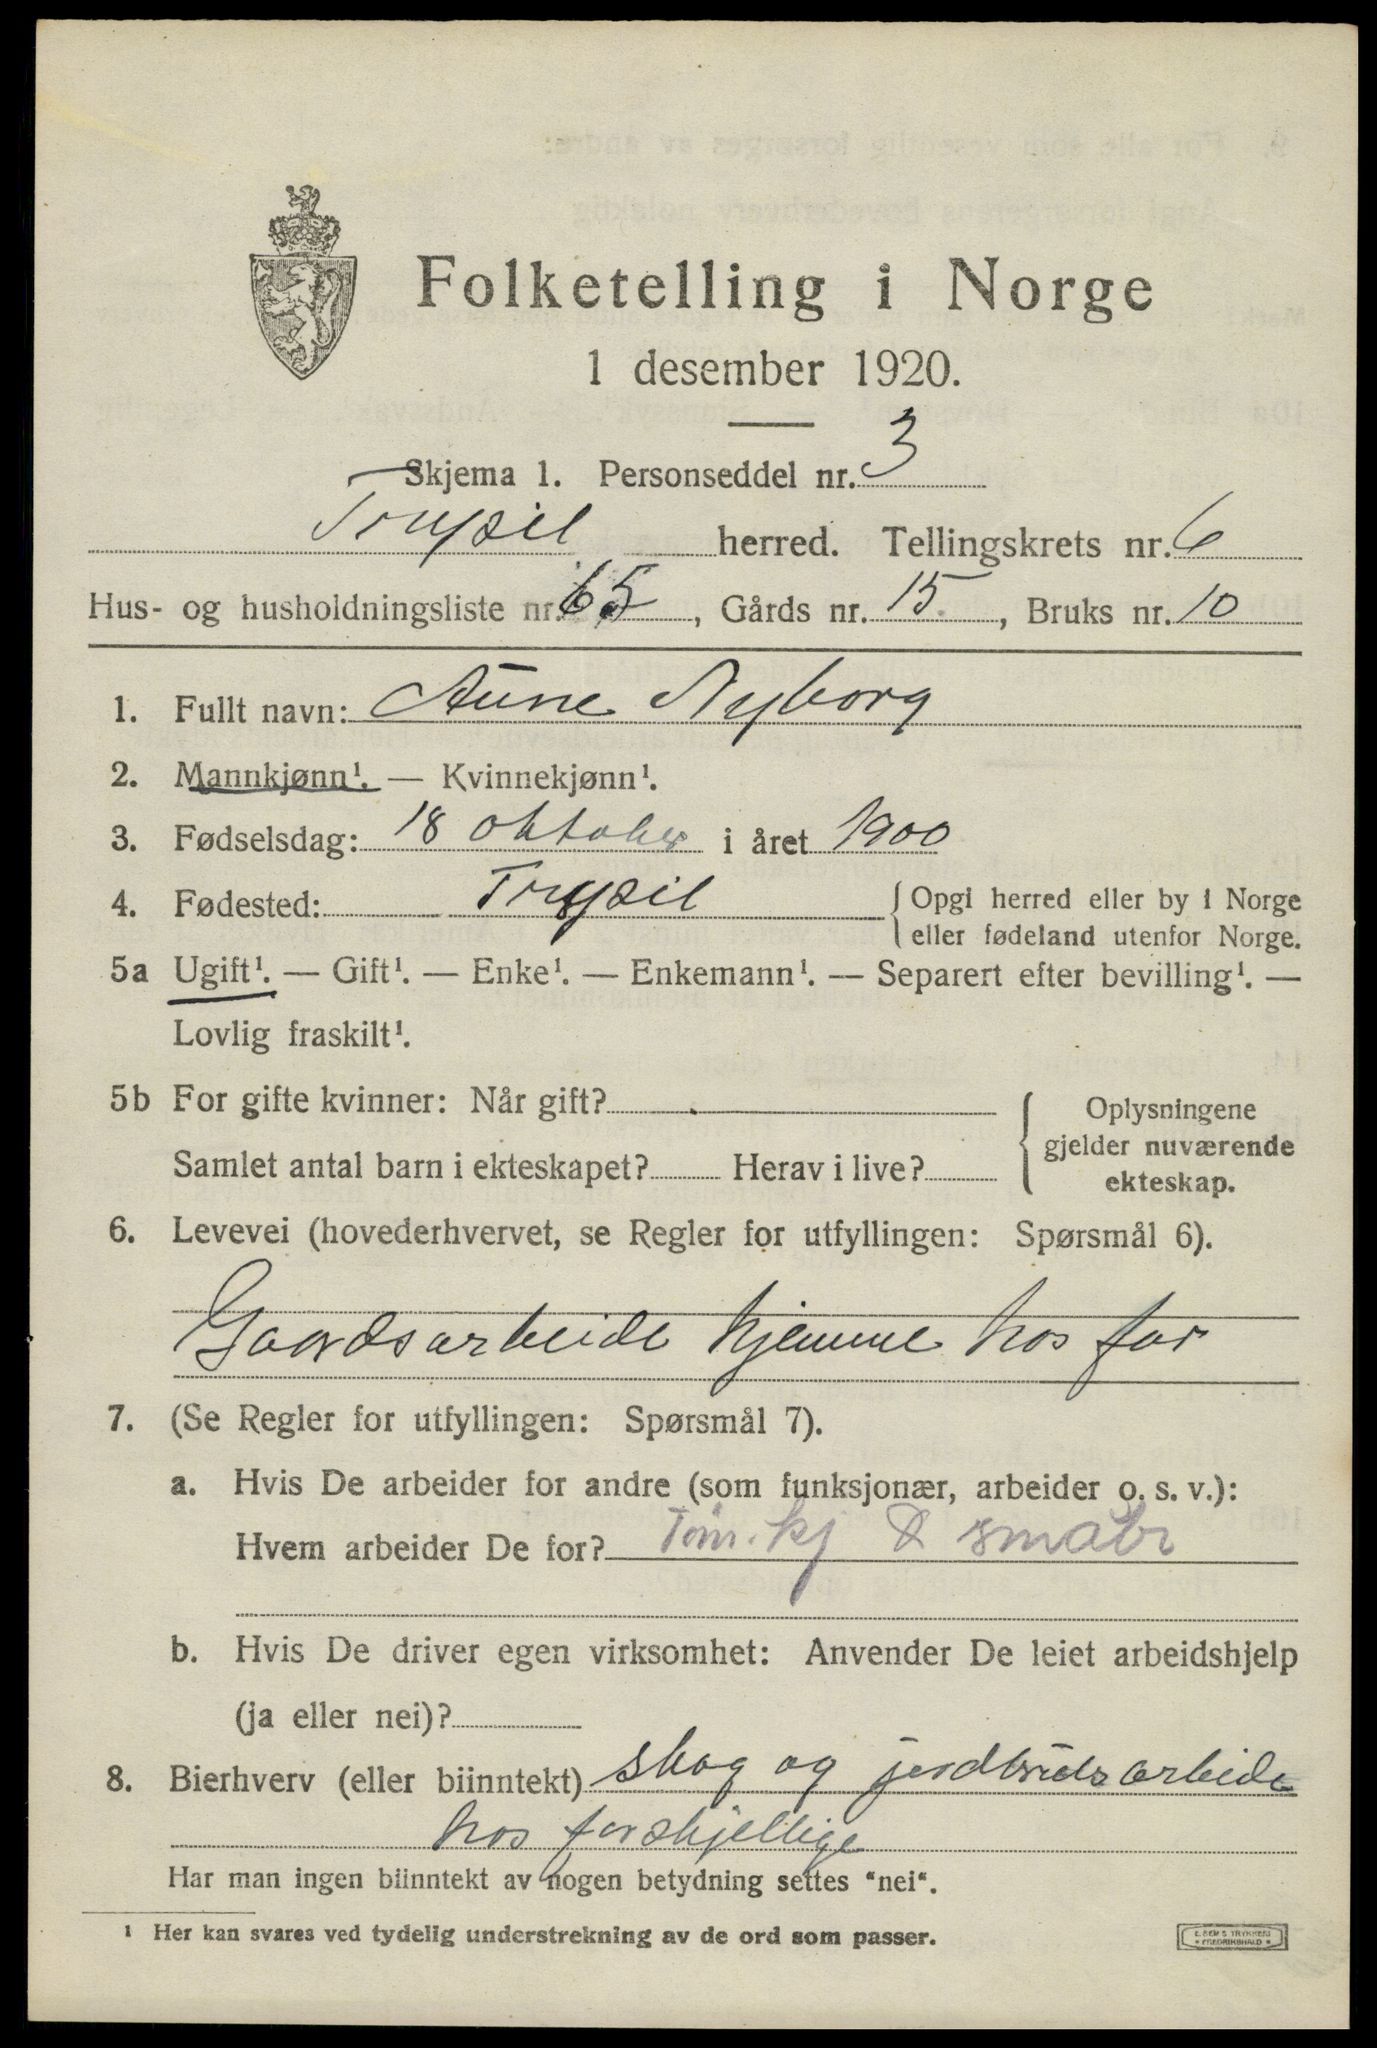 Folketelling i Norge
1 desember 1920.
Skjema 1. Personseddel nr. 3
Trysil herred. Tellingskrets nr. 6
Hus- og husholdningsliste nr. 65, Gårds nr. 15, Bruks nr. 10
1. Fullt navn: Aune Nyborg
2. Mannkjønn¹. — Kvinnekjønn¹.
3. Fødselsdag: 18 oktober i året 1900
4. Fødested: Trysil { Opgi herred eller by i Norge
eller fødeland utenfor Norge.
5a Ugift¹. — Gift¹. — Enke¹. — Enkemann¹. — Separert efter bevilling¹. —
Lovlig fraskilt¹.
5b For gifte kvinner: Når gift?
Samlet antal barn i ekteskapet? Herav i live?
{ Oplysningene
gjelder nuværende
ekteskap.
6. Levevei (hovederhvervet, se Regler for utfyllingen: Spørsmål 6).
Gaardsarbeide hjemme hos far
7. (Se Regler for utfyllingen: Spørsmål 7).
a. Hvis De arbeider for andre (som funksjonær, arbeider o. s. v.):
Hvem arbeider De for? Tøm.kj & småbr
b. Hvis De driver egen virksomhet: Anvender De leiet arbeidshjelp
(ja eller nei)?
8. Bierhverv (eller biinntekt) skog og jordbrudsarbeide
hos forskjellige
Har man ingen biinntekt av nogen betydning settes "nei".
¹ Her kan svares ved tydelig understrekning av de ord som passer.
E. SEM'S TRYKKERI
FREDRIKSHALD